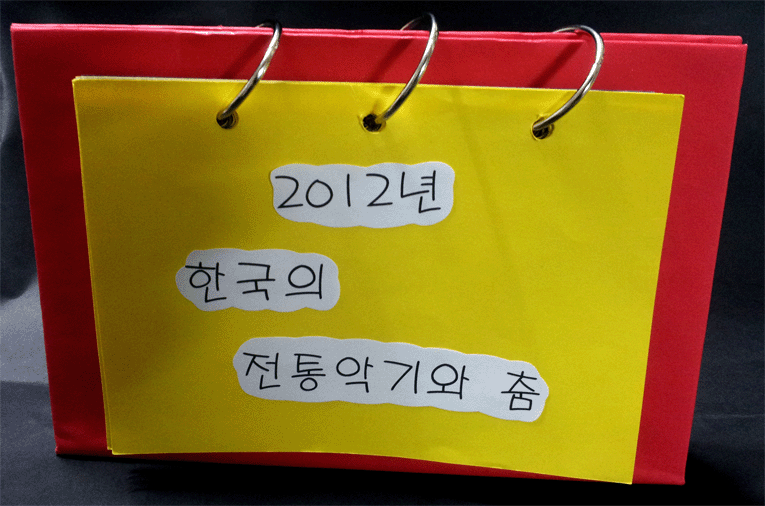 2012년
한국의
전통악기와 춤